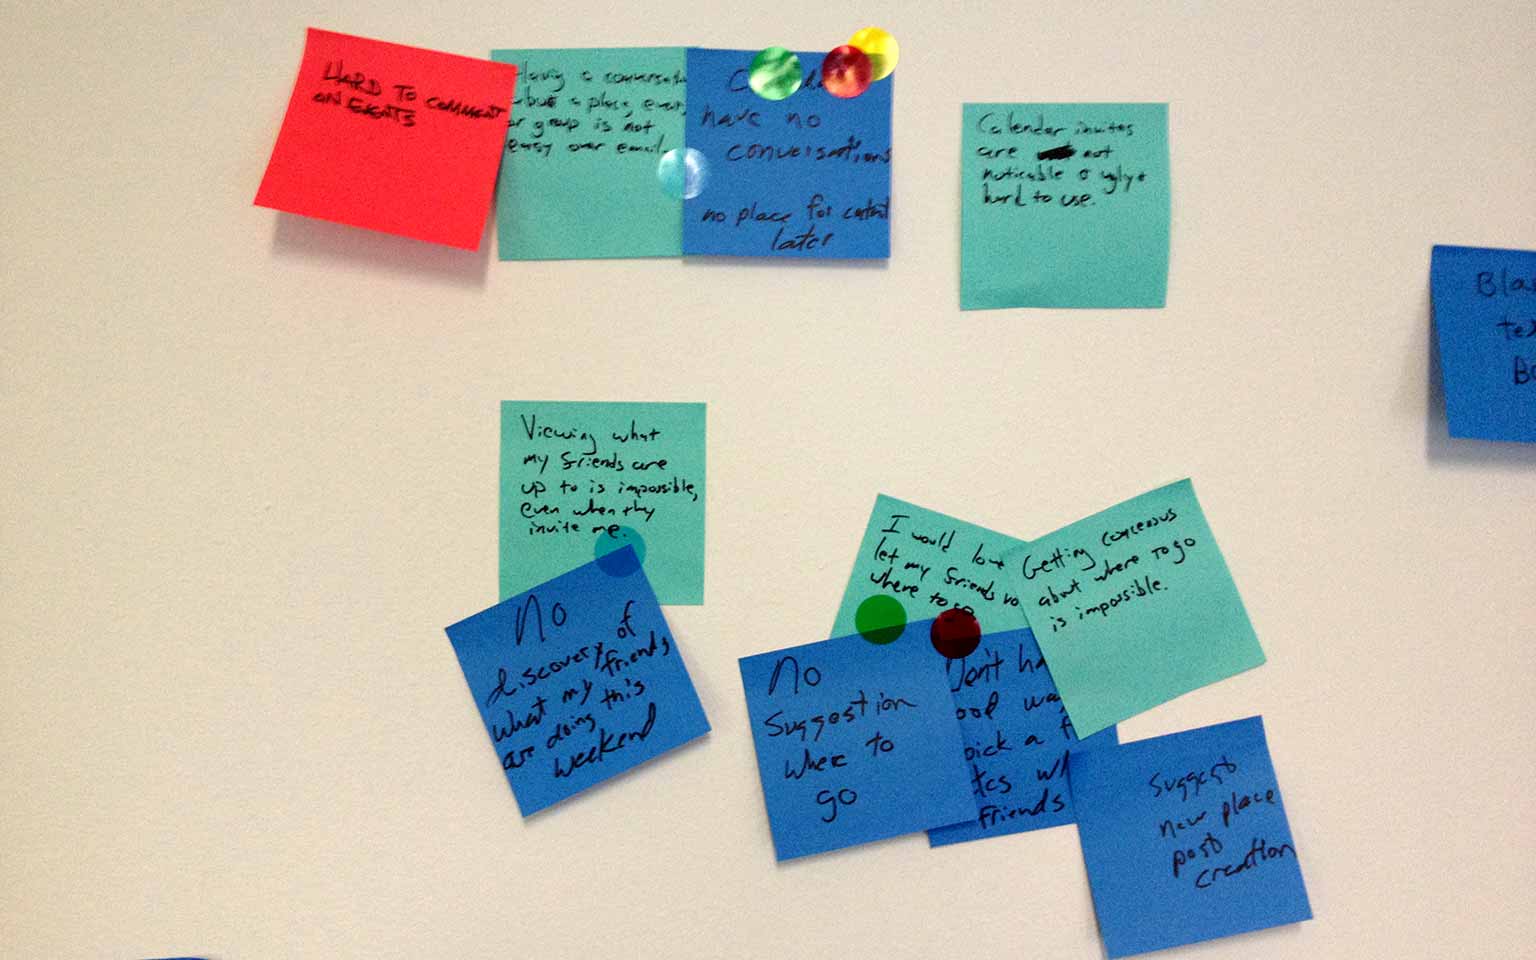 HARD TO COMMENT
ON EVENTS
Having a
a place,
or group is not
easy over email.
have no
conversations
no place for
later
Calendar invites
are not
noticable & ugly &
hard to use.
Viewing what
my friends are
up to is impossible,
even when they
invite me.
No
discovery of
what my friends
are doing this
weekend
I would
let my friends
where to go
Getting concensus
about where to go
is impossible.
No
Suggestion
where to
go
Don't
pick a
friends
Suggest
new place
post
creation